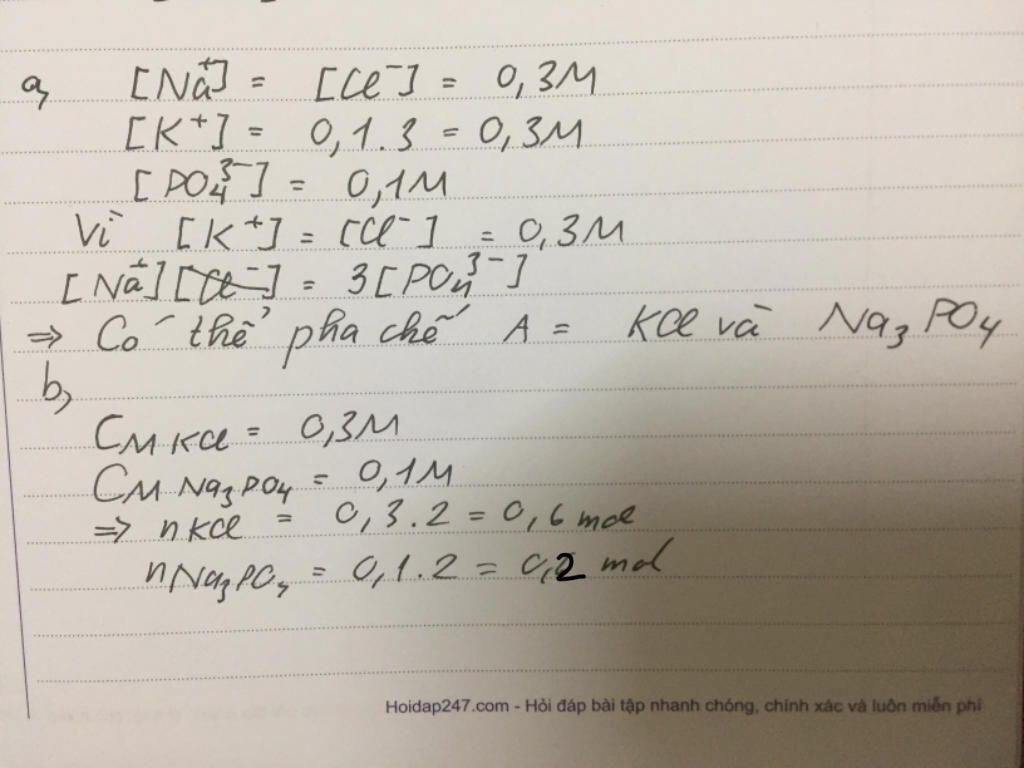 a, [Na⁺] = [Cl⁻] = 0,3M
[K⁺] = 0,1.3 = 0,3M
[PO₄³⁻] = 0,1M
Vì [K⁺] = [Cl⁻] = 0,3M
[Na⁺] [Cl⁻] = 3[PO₄³⁻]
⇒ Có thể pha chế A = KCl và Na₃PO₄
b,
CM KCl = 0,3M
CM Na₃PO₄ = 0,1M
⇒ nKCl = 0,3.2 = 0,6 mol
nNa₃PO₄ = 0,1.2 = 0,2 mol
Hoidap247.com - Hỏi đáp bài tập nhanh chóng, chính xác và luôn miễn phí